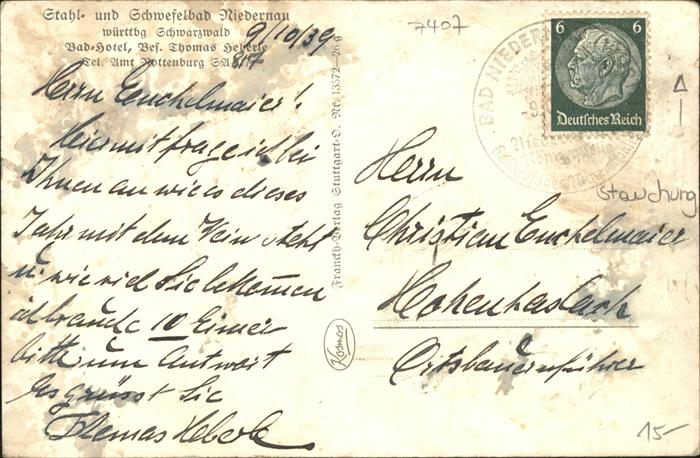 Stahl- und Schwefelbad Niedernau
württbg Schwarzwald
Bad-Hotel, Bes. Thomas Heberle
Tel. Amt Rottenburg SA 817
9/10/39
Herrn Enckelmaier!
Hiermit frage ich bei
Ihnen an wie es dieses
Jahr mit dem Wein steht
u. wie viel Sie bekommen
ich brauche 10 Eimer
bitte um Antwort
Es grüsst Sie
Thomas Heberle
Franckh-Verlag Stuttgart-O. Nr. 13572—26 g
Kosmos
7407
BAD NIEDERN
6 6
Deutsches Reich
Stauchung
Herrn
Christian Enckelmaier
Hohenhaslach
Ortsbauernführer
15-